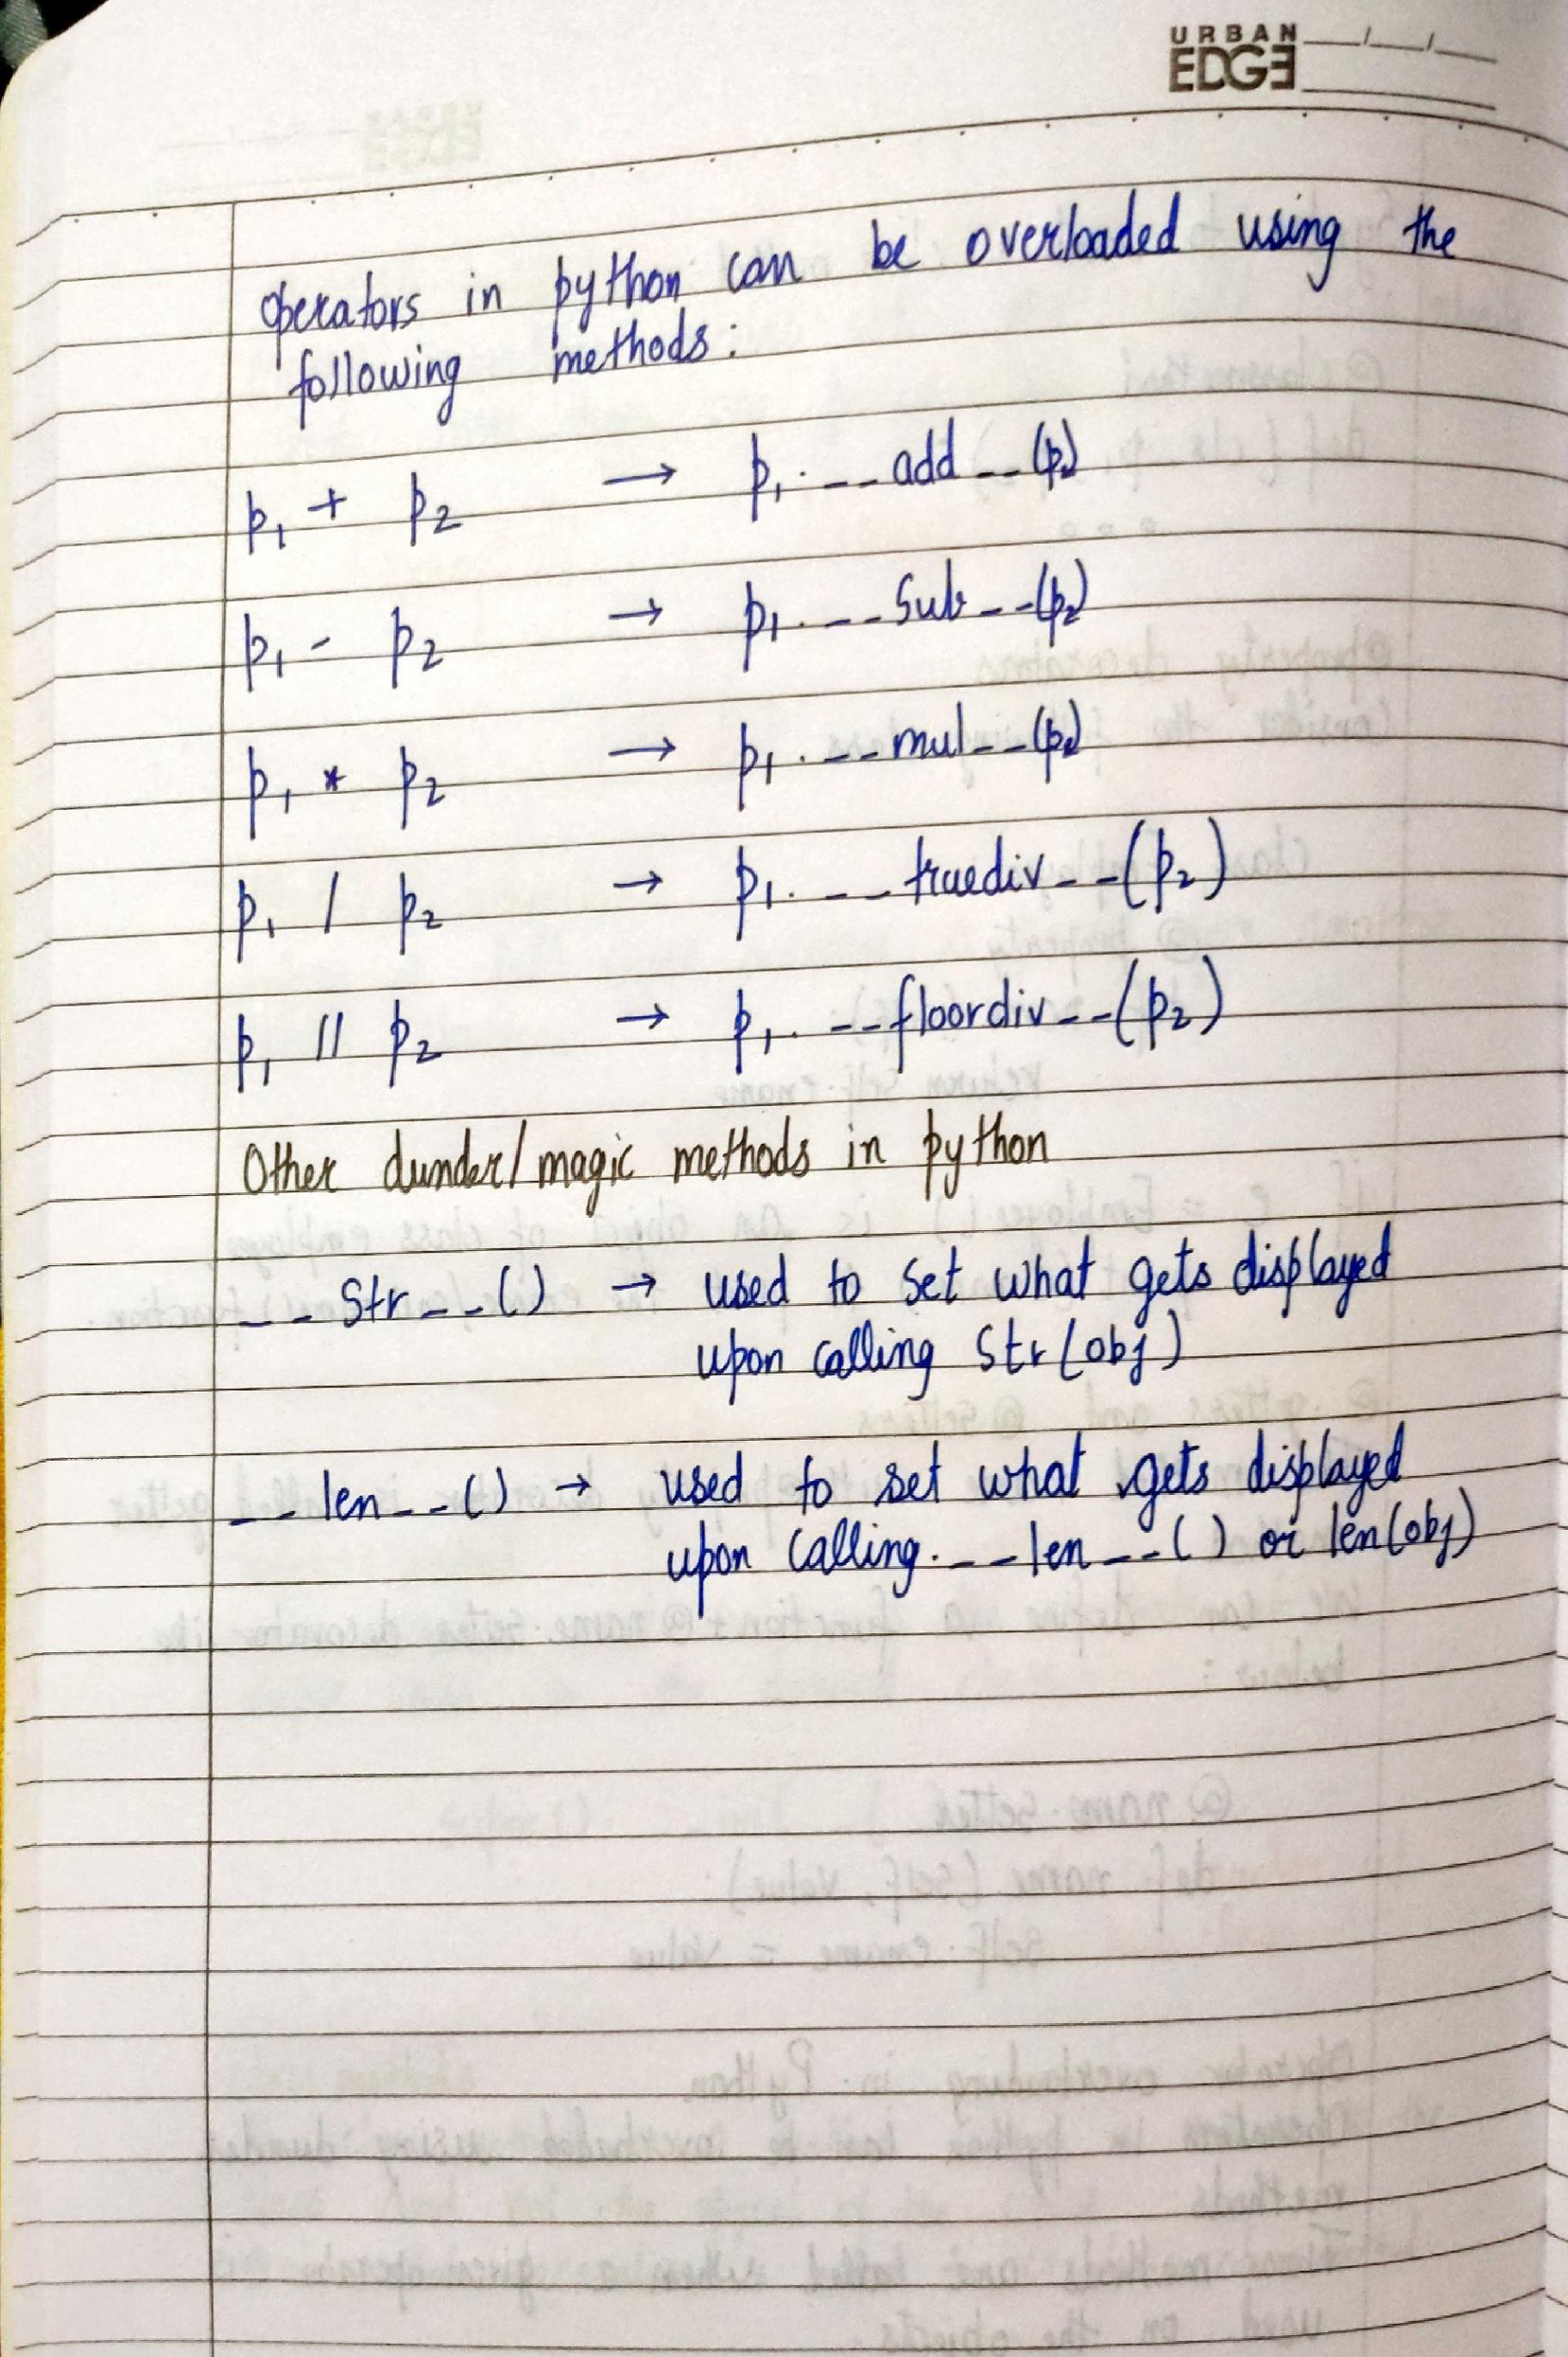 URBAN
EDGE
operators in python can be overloaded using the
following methods:
p₁ + p₂ → p₁.__add__(p₂)
p₁ - p₂ → p₁.__sub__(p₂)
p₁ * p₂ → p₁.__mul__(p₂)
p₁ / p₂ → p₁.__truediv__(p₂)
p₁ // p₂ → p₁.__floordiv__(p₂)
Other dunder/magic methods in python
__str__() → used to set what gets displayed
upon calling str(obj)
__len__() → used to set what gets displayed
upon calling.__len__() or len(obj)